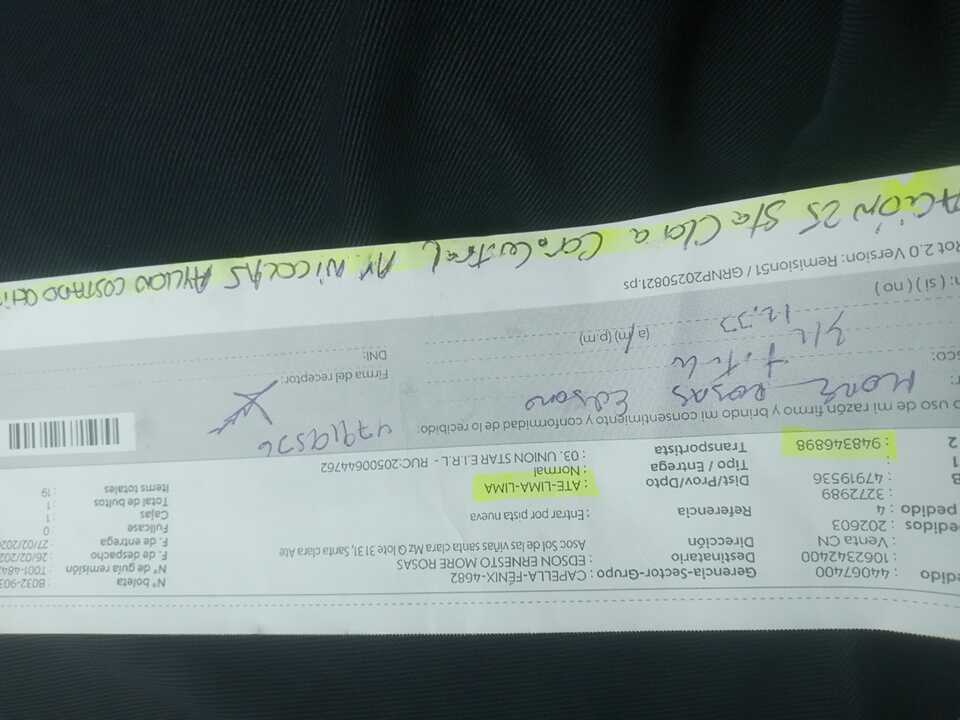 edido : 44067400 Gerencia-Sector-Grupo : CAPELLA-FÉNIX-4682 N° boleta : B032-903
: 1062342400 Destinatario : EDSON ERNESTO MORE ROSAS N° de guía de remisión : T001-484
: Venta CN Dirección : Asoc Sol de las viñas santa clara Mz Q lote 31 31, Santa clara Ate F. de despacho : 26/02/202
pedidos : 202603 F. de entrega : 27/02/202
pedido : 4 Referencia : Entrar por pista nueva Fullcase 0
: 32722989 Cajas : 1
B : 47919536 Dist/Prov/Dpto : ATE-LIMA-LIMA Total de bultos : 1
1 : Tipo / Entrega : Normal Items totales : 19
2 : 948346898 Transportista : 03. UNION STAR E.I.R.L. - RUC:20500644762
o uso de mi razón firmo y brindo mi consentimiento y conformidad de lo recibido:
r: More Rosas Edson 47919536
sco: Titular Firma del receptor:
3/2 12:33 (a/m) (p.m) DNI:
n: ( si ) ( no )
Rot 2.0 Version: Remision51 / GRNP20250821.ps
ACIÓN 25 Sta Clara Car. Central AV. NICOLAS AYLLON COSTADO DEL